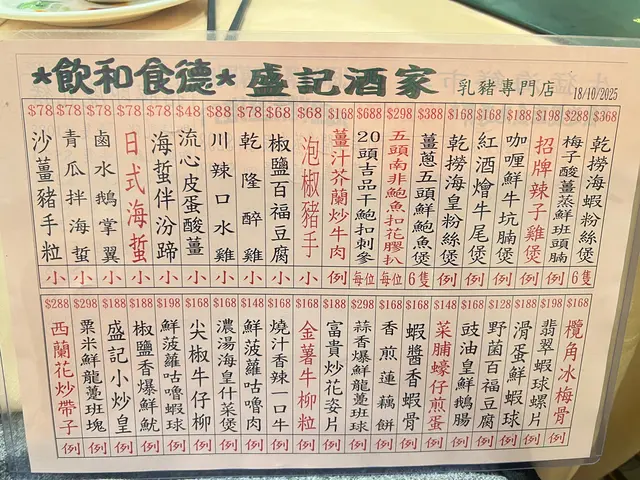 *飲和食德* 盛記酒家 乳豬專門店 18/10/2025
$368
乾撈海蝦粉絲煲
6隻
$288
梅子酸薑蒸鮮班頭腩
例
$198
招牌辣子雞煲
例
$188
咖喱鮮牛坑腩煲
例
$168
紅酒燴牛尾煲
例
$168
乾撈海皇粉絲煲
例
$388
薑蔥五頭鮮鮑魚煲
6隻
$298
五頭南非鮑魚扣花膠扒
每位
$688
20頭吉品干鮑扣刺參
每位
$168
薑汁芥蘭炒牛肉
例
$68
泡椒豬手
小
$68
椒鹽百福豆腐
小
$78
乾隆醉雞
小
$88
川辣口水雞
小
$48
流心皮蛋酸薑
小
$78
海蜇伴汾蹄
小
$78
日式海蜇
小
$78
鹵水鵝掌翼
小
$78
青瓜拌海蜇
小
$78
沙薑豬手粒
小
$168
欖角冰梅骨
例
$198
翡翠蝦球螺片
例
$188
滑蛋鮮蝦球
例
$128
野菌百福豆腐
例
$168
豉油皇鮮鵝腸
例
$148
菜脯蠔仔煎蛋
例
$168
蝦醬香蝦骨
例
$168
香煎蓮藕餅
例
$298
蒜香爆鮮龍躉班球
例
$188
富貴炒花姿片
例
$168
金薯牛柳粒
例
$168
燒汁香辣一口牛
例
$148
鮮菠蘿咕嚕肉
例
$168
濃湯海皇什菜煲
例
$168
尖椒牛仔柳
例
$198
鮮菠蘿咕嚕蝦球
例
$188
椒鹽香爆鮮魷
例
$188
盛記小炒皇
例
$298
粟米鮮龍躉班塊
例
$288
西蘭花炒帶子
例